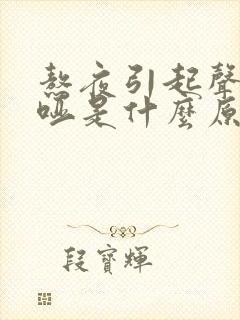 熬夜引起聲
啞是什麼原
段寶輝